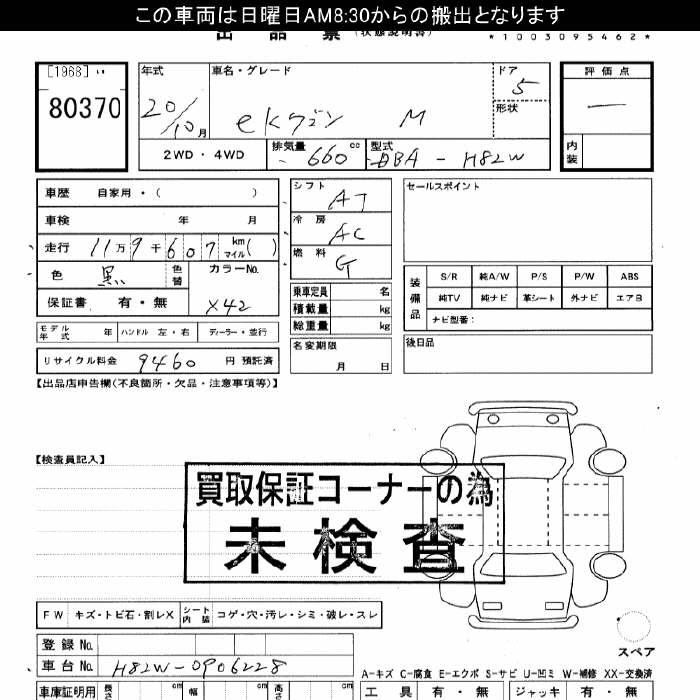 この車両は日曜日AM8:30からの搬出となります
出品票(状態説明書)
*1003095462*
[1968]
80370
年式
20/10月
車名・グレード
ekワゴン M
ドア
5
形状
評価点
—
内装
2WD・4WD
排気量 660 cc
型式 DBA - H82W
車歴 自家用・( )
車検 年 月
走行 11万9千607 km マイル( )
色 黒
色替
カラーNo.
X42
保証書 有・無
モデル年式 年
ハンドル 左・右
ディーラー・並行
リサイクル料金 9460 円 預託済
シフト AT
冷房 AC
燃料 G
乗車定員 名
積載量 kg
総重量 kg
名変期限
月 日
セールスポイント
装備品
S/R 純A/W P/S P/W ABS
純TV 純ナビ 革シート 外ナビ エアB
ナビ型番:
後日品
【出品店申告欄(不良箇所・欠品・注意事項等)】
【検査員記入】
買取保証コーナーの為
未検査
FW キズ・トビ石・割レX
シート内装 コゲ・穴・汚レ・シミ・破レ・スレ
スペア
登録No.
車台No. H82W-0906228
A-キズ C-腐食 E-エクボ S-サビ U-凹ミ W-補修 XX-交換済
車庫証明用 長さ cm 幅 cm 高さ cm
工具 有・無 ジャッキ 有・無